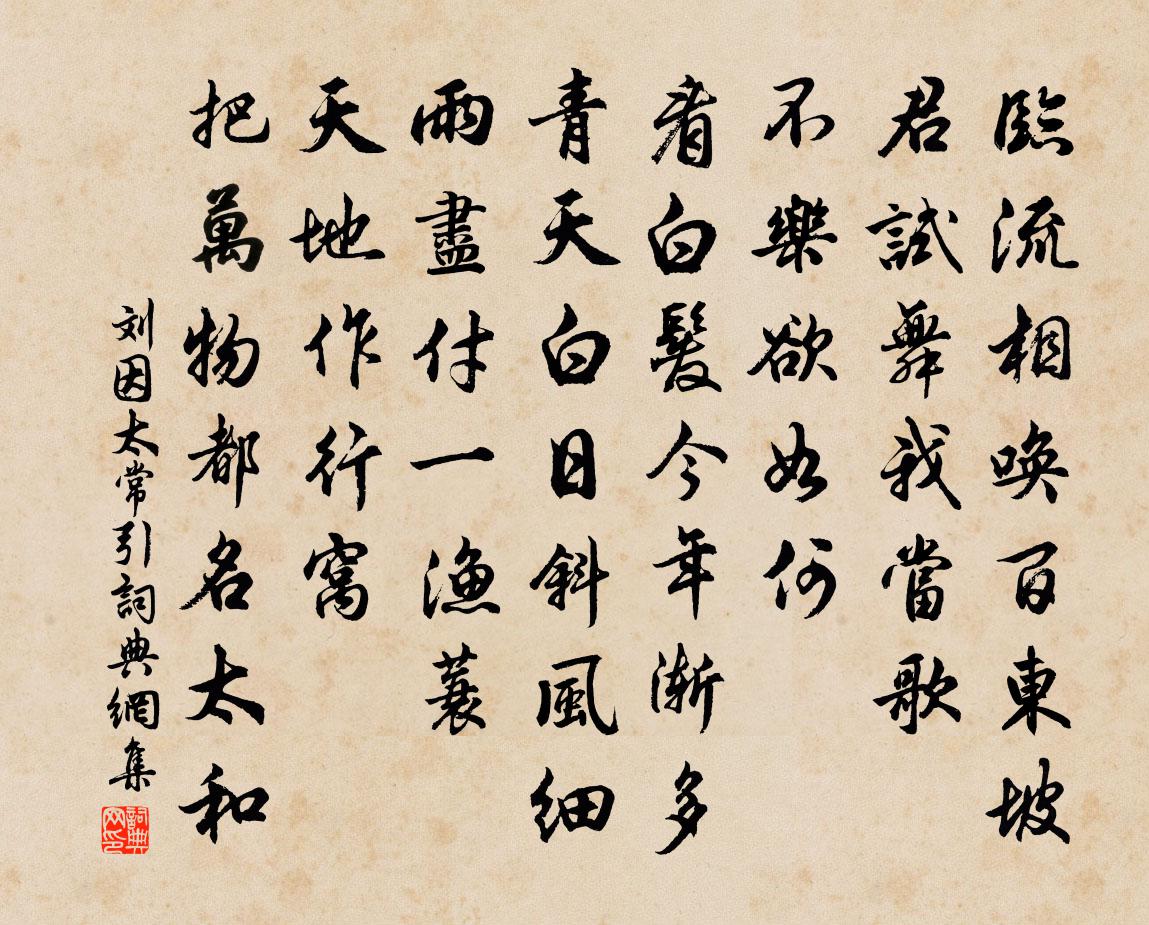 臨流相喚百東坡
君試舞我當歌
不樂欲如何
看白髮今年漸多
青天白日斜風細
雨盡付一漁蓑
天地作行窩
把萬物都名太和
刘因太常引詞典網集
詞典網印